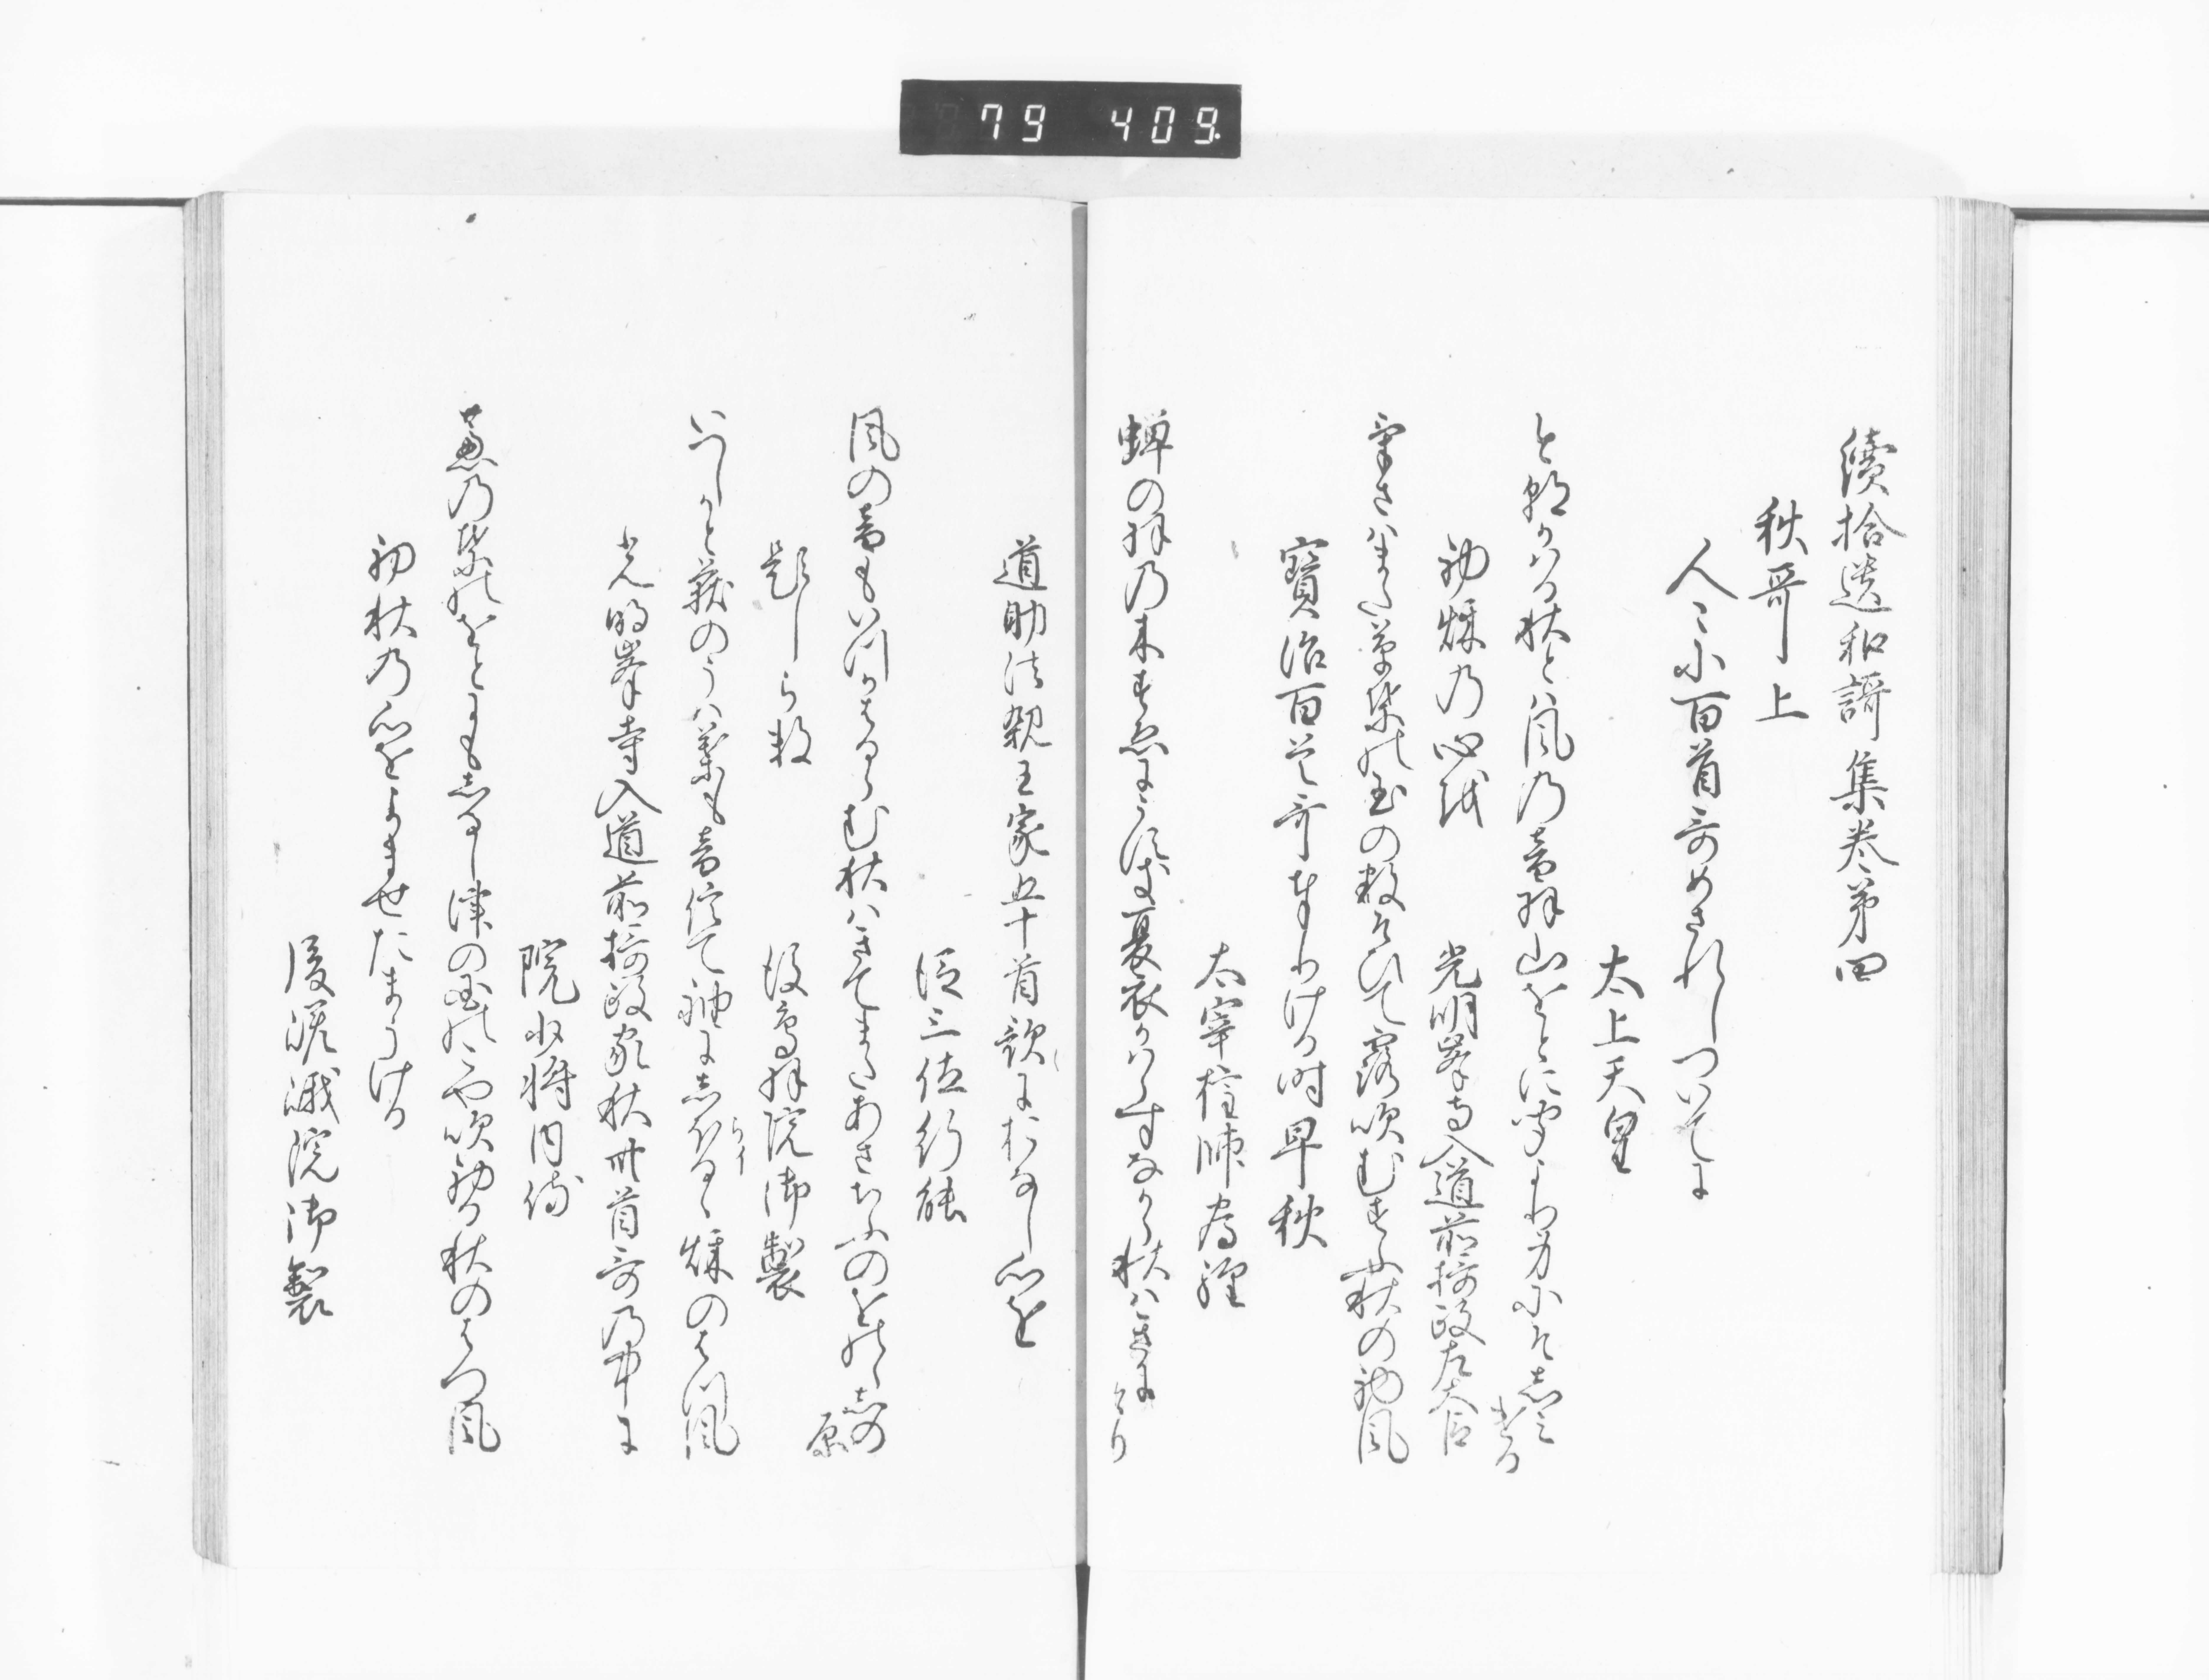 79 409
續拾遺和謌集巻第四
秋哥上
人々に百首哥めされしついてに
太上天皇
と
かはる秋とは風の音羽山をとに聞より身にそしみ
ける
初秌の心を
光明峯寺入道前摂政左大臣
草葉の玉の数そひて露吹むすふ秋の初風
寳治百首哥奉りける時早秋
太宰権帥為経
蝉の羽の木すゑにうすき夏衣かはらすなから秋はきに
けり
道助法親王家五十首歌におなし心を
従三位行能
風の音もいつかはるらむ秋はきてまたあさちふのをのゝしの
原
題しら数
後鳥羽院御製
いつしかと荻のうは葉も音信て袖にしらるゝ秌のはつ風
光明峯寺入道前摂政家秋卅首哥の中に
院少将内侍
蘆の葉のをとにもしるし津の国のこや吹初る秋のはつ風
初秋の心をよませたまうける
後嵯峨院御製